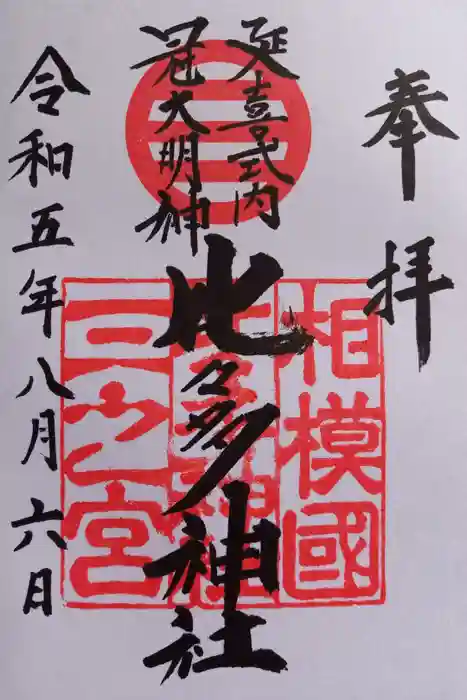 奉拝
延喜式内
冠大明神
比々多神社
令和五年八月六日
三
相模國
三之宮